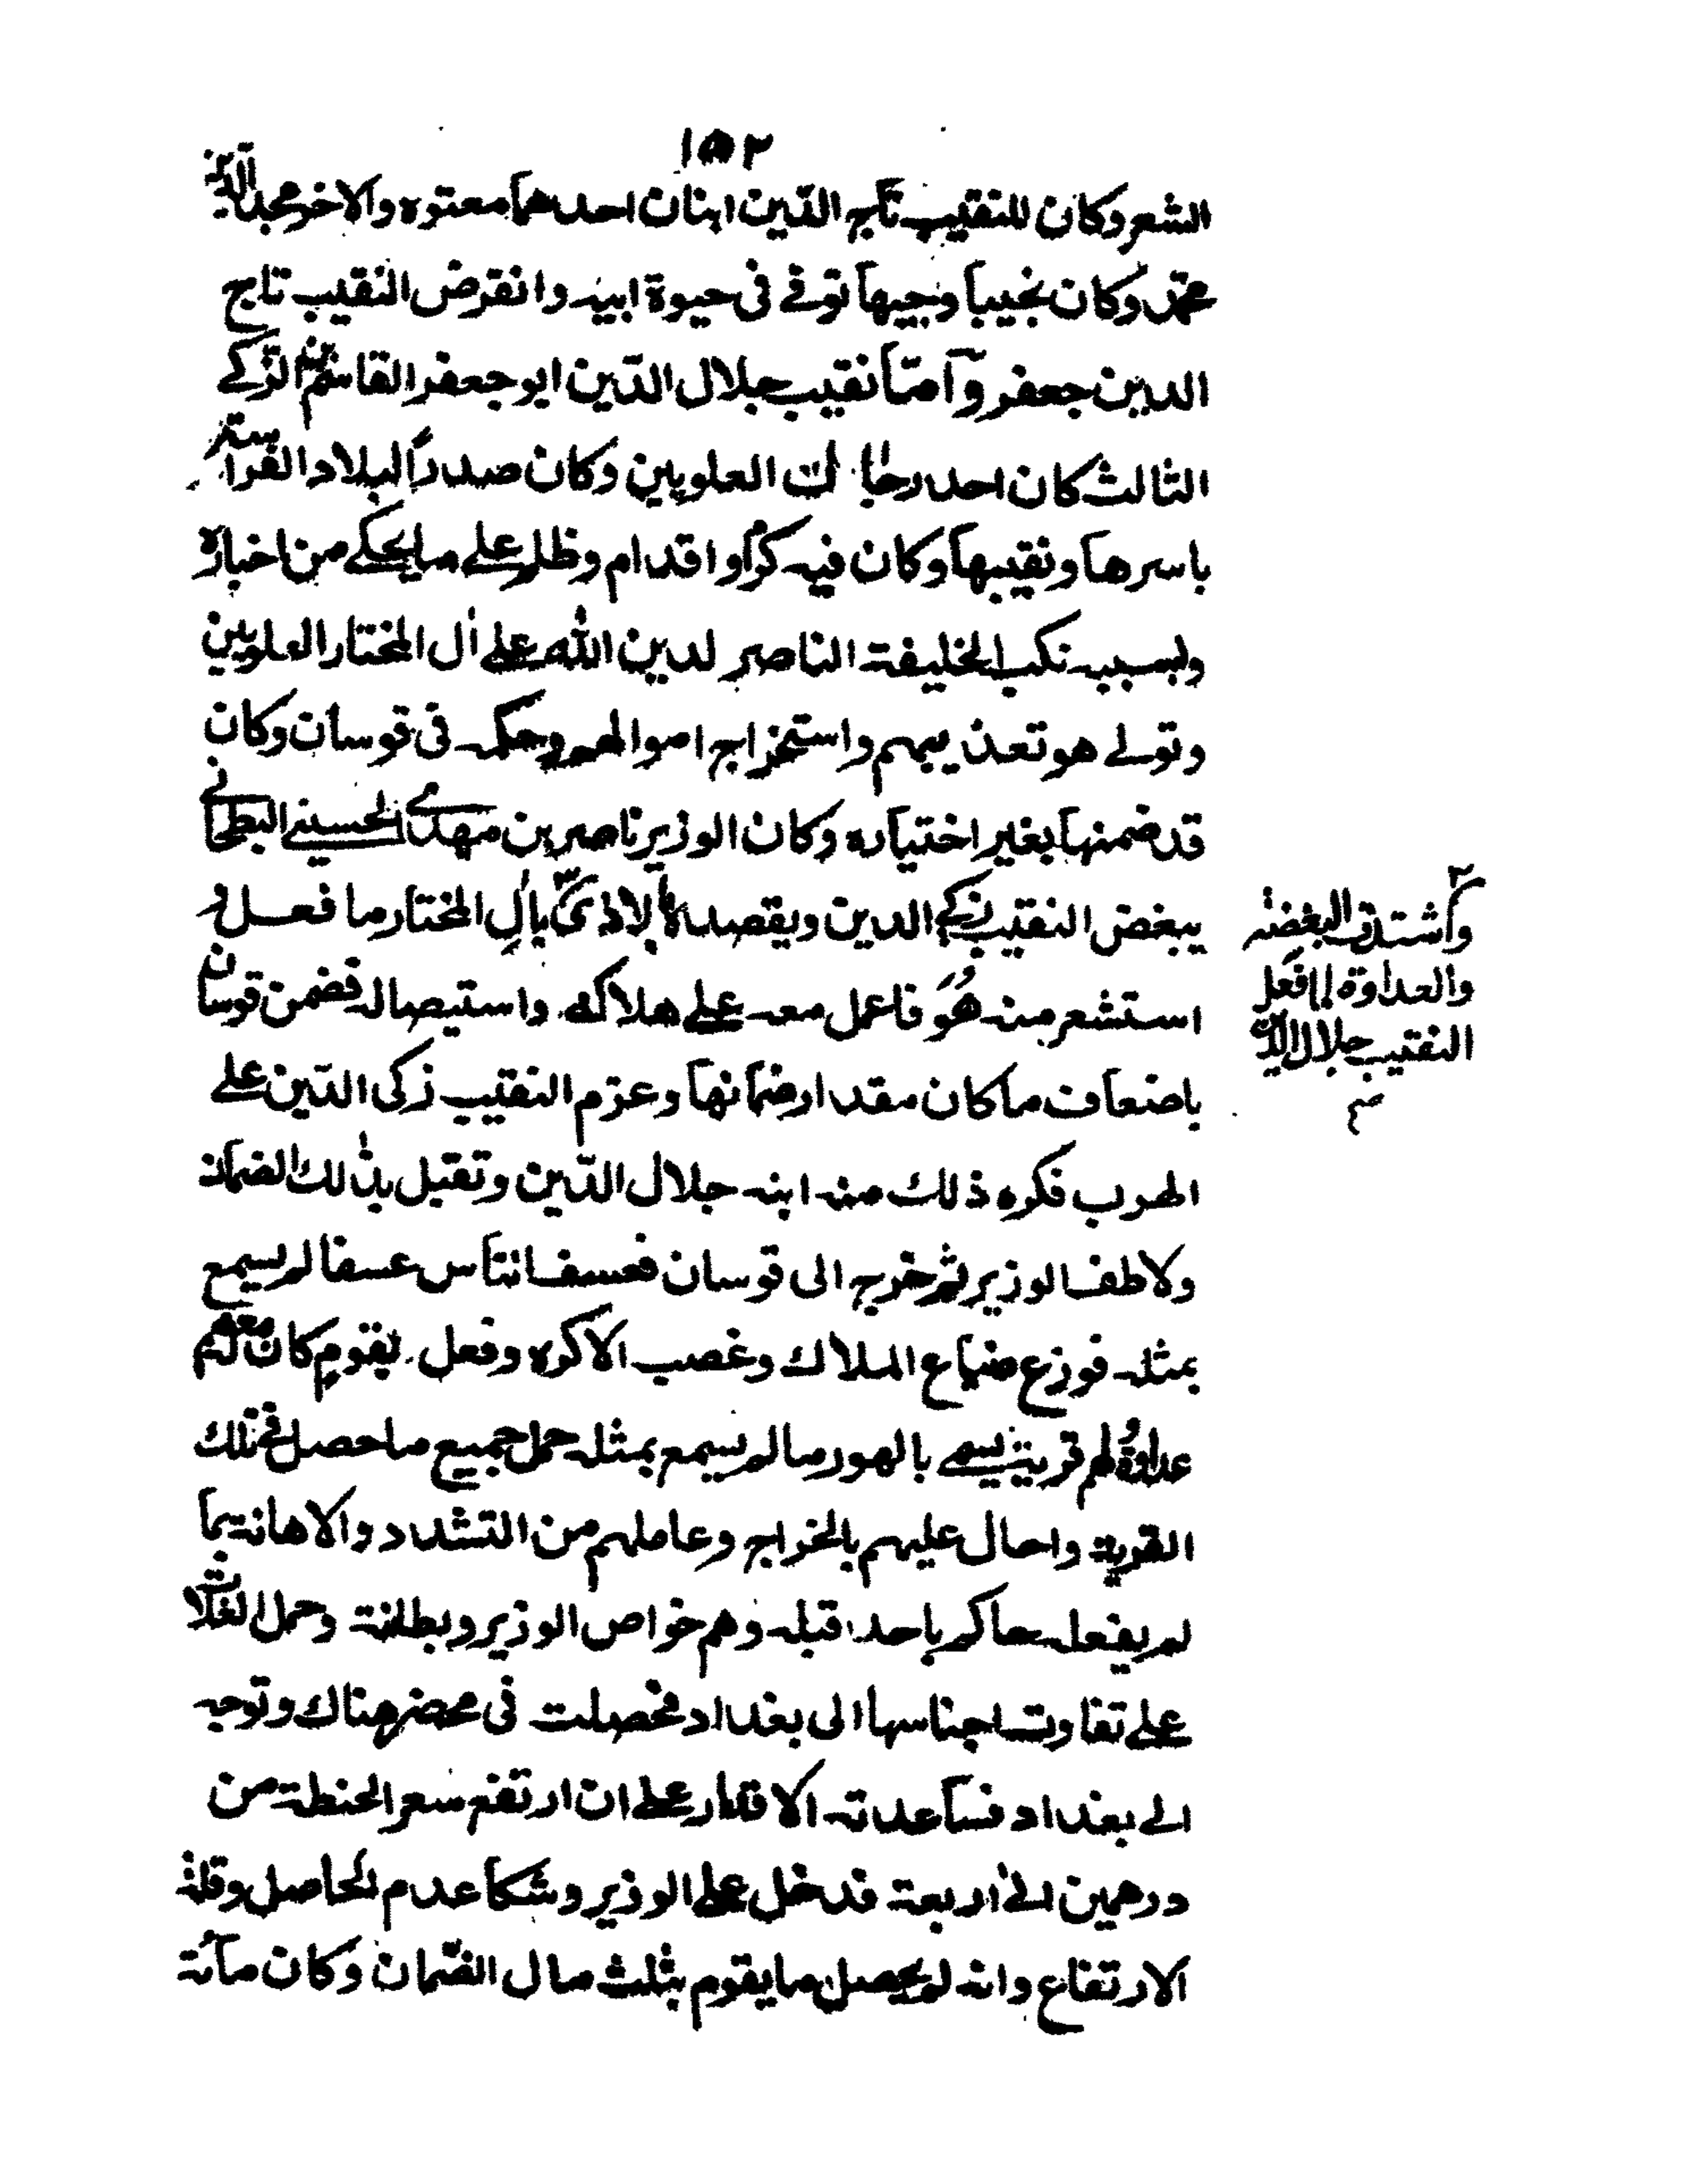 ١٥٢
الشعر وكان للنقيب تاج الدّين ابنان احدهما معتوه والاخر مجد الدّين
محمّد وكان نجيباً وجيهاً توفے فى حيوة ابيه وانقرض النقيب تاج
الدين جعفر وآمّا نقيب جلال الدّين ابو جعفر القاسم بن الزكے
الثالث كان احد رجالات العلويين وكان صدراً لبلاد الفراتية
باسرها ونقيبهاً وكان فيه كرم واقدام وظلم علے ما يحكے من اخباره
ولسببه نكب الخليفة الناصر لدين اللّه علے اٰل المختار العلويين
وتولے هو تعذيبهم واستخراج اموالهم وحكمه فى قوسان وكان
قد ضمنها بغير اختياره وكان الوزير ناصر بن مهدے الحسينے البطحانے
يبغض النقيب زكے الدين ويقصده بالاذىّ باٰل المختار ما فعل و
استشعر منه هُوَ فاعمل معه علے هلاكه واستيصاله فضمن قوسان
باضعاف ما كان مقدار ضمانها وعزم النقيب زكى الدّين علے
الهرب فكره ذلك منه ابنه جلال الدّين وتقبل بذٰلك الضمان
ولاطف الوزير ثم خرج الى قوسان فعسف انتاس عسفا لم يسمع
بمثله فوزع ضياع الملاك وغصب الاكره وفعل بقومٍ كان معهم
عداوةُ لهم قرية يسمے بالهور ما لم يسمع بمثله حمل جميع ما حصل فى تلك
القرية واحال عليهم بالخراج وعاملهم من التشدد والاهانة بما
لم يفعل حاكم باحد قبله وهم خواص الوزير وبطانة وحمل الغلات
علے تفاوت اجناسها الى بغداد فحصلت فى محضر هناك وتوجه
الے بغداد فساعدته الاقدار علے ان ارتفع سعر الحنطة من
درهمين الےٰ اربعة فدخل علے الوزير وشكا عدم الحاصل وقلة
الارتفاع وانه لم يحصل ما يقوم بثلث مال الضّمان وكان مآئة
واشتدت البغضة
والعداوة لما فعل
النقيب جلال الدين
صح